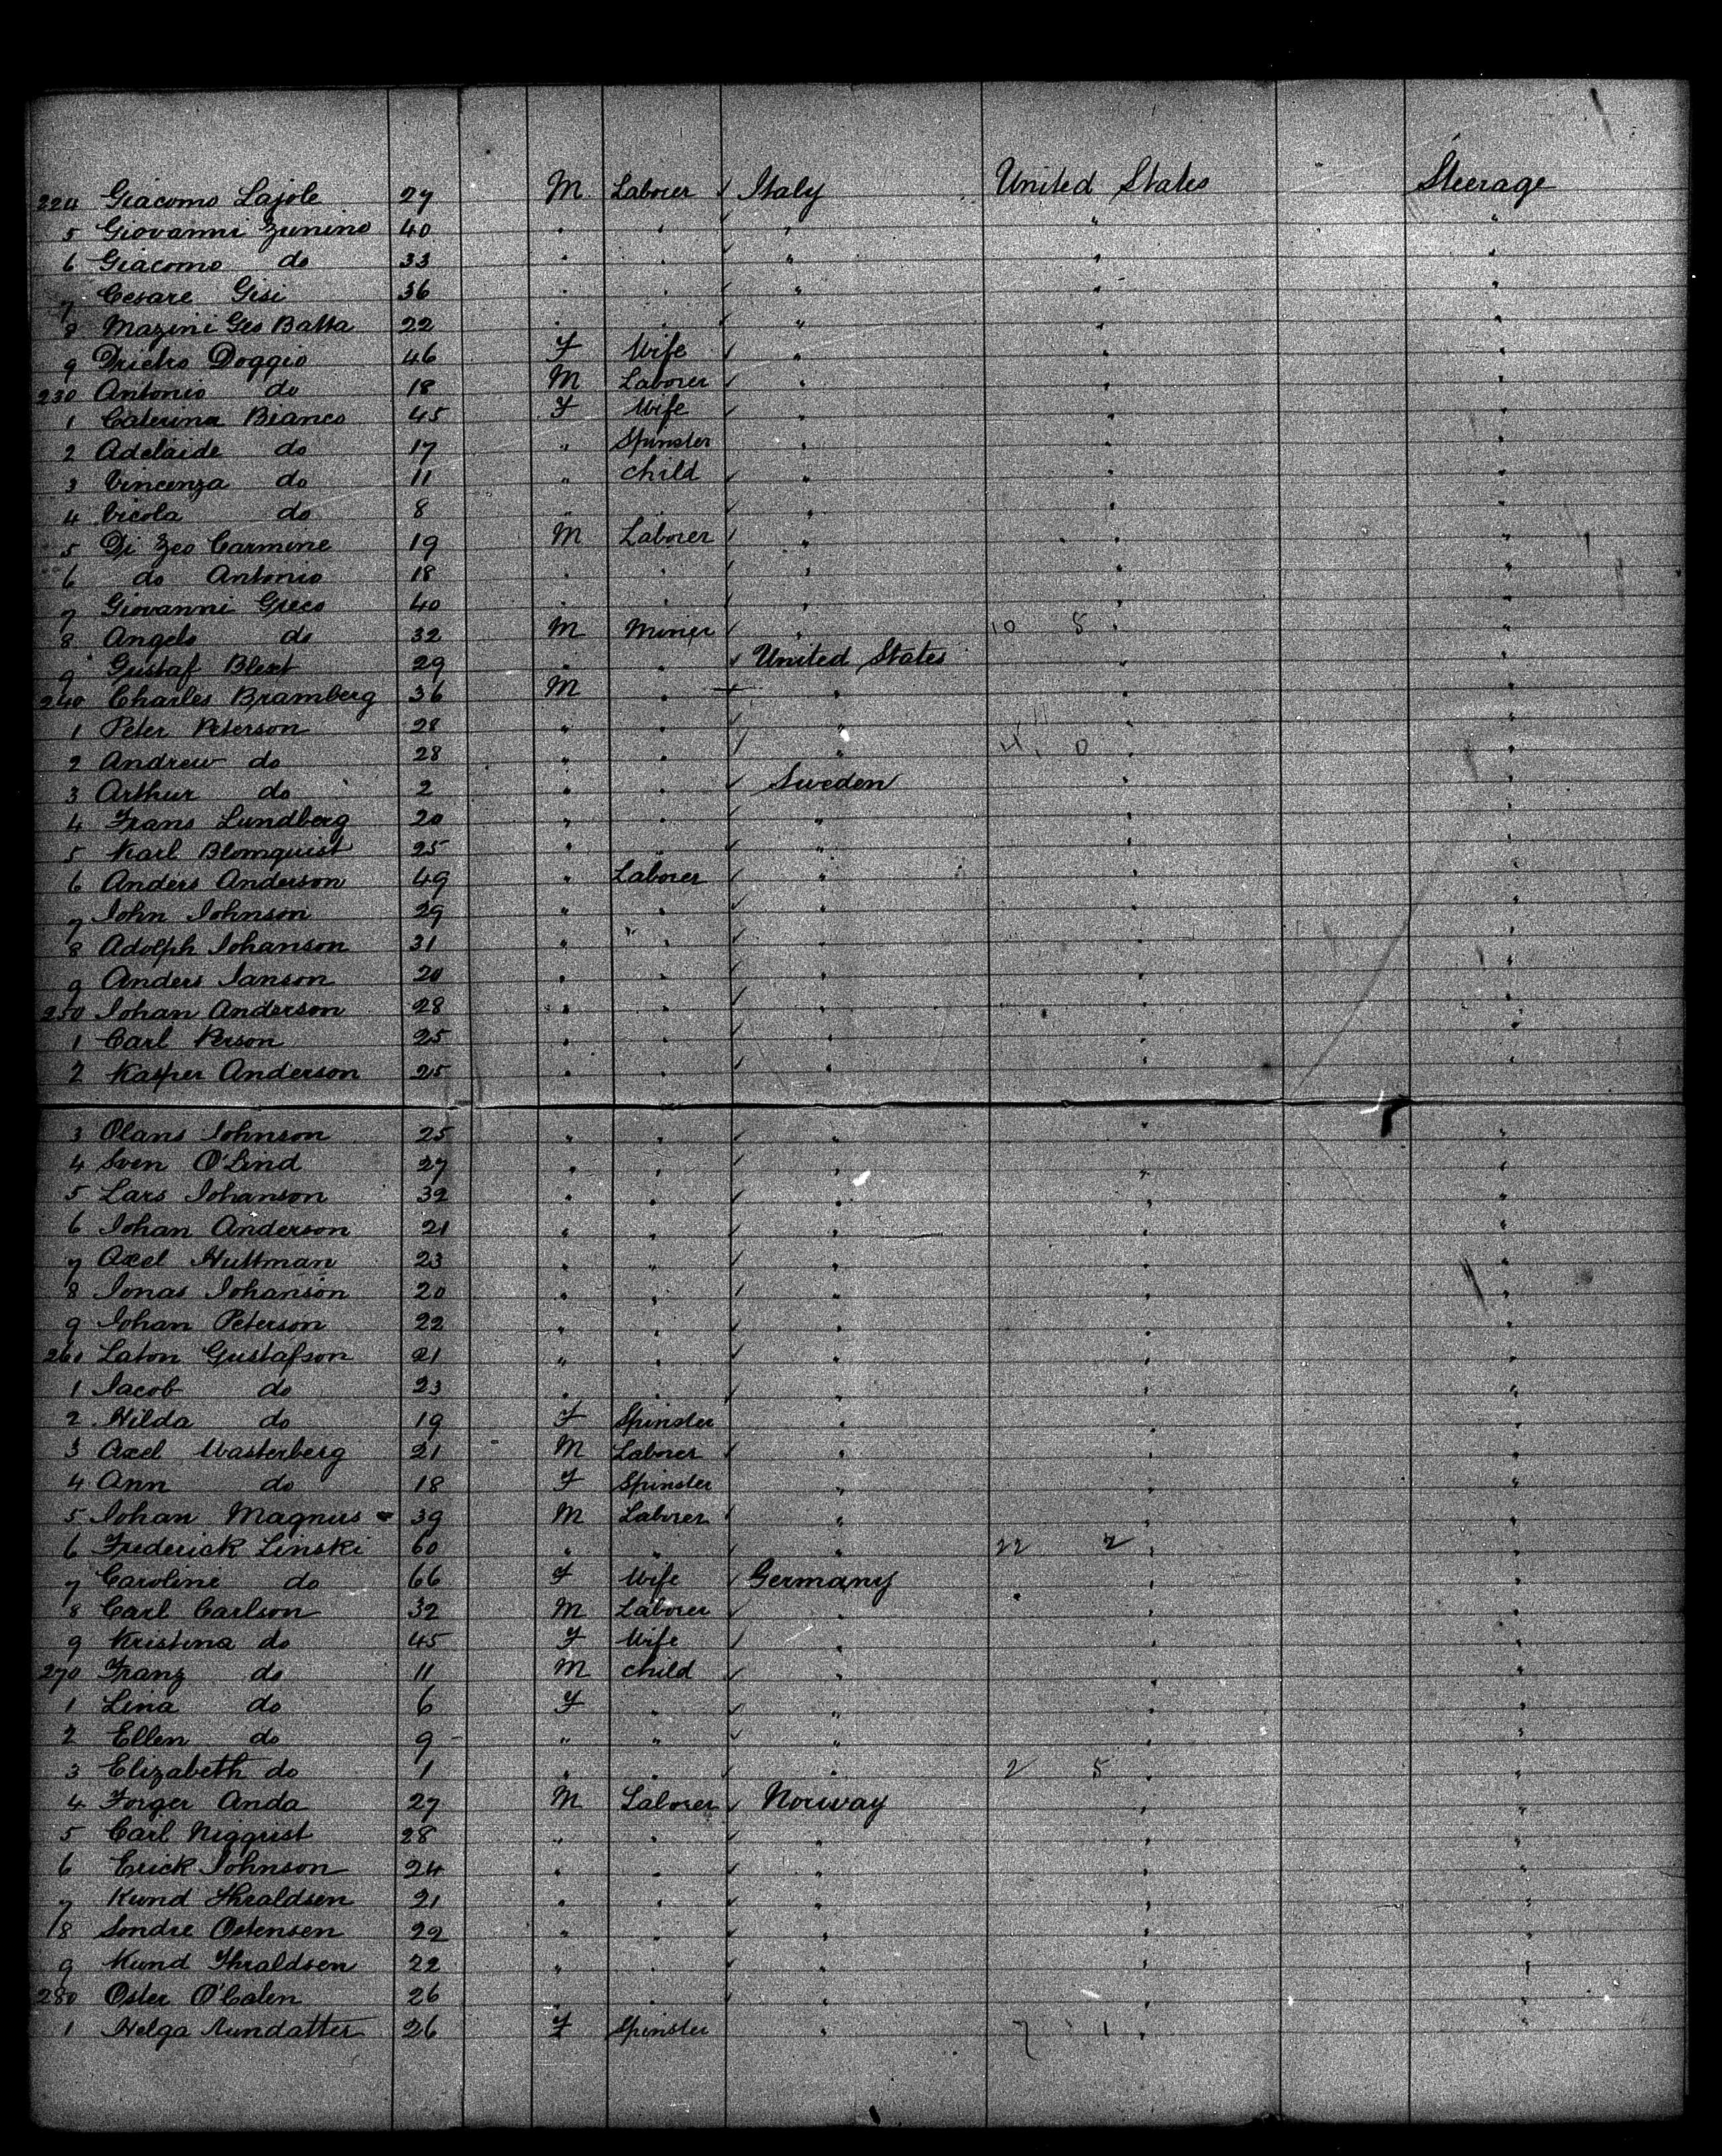 224 Giacomo Lajole 27 M Laborer ✓ Italy United States Steerage
5 Giovanni Zunino 40 " " ✓ " " "
6 Giacomo do 33 " " ✓ " " "
7 Cesare Gisi 36 " " ✓ " " "
8 Mazini Geo Batta 22 " " ✓ " " "
9 Doggio 46 F Wife ✓ " " "
230 Antonio do 18 M Laborer ✓ " " "
1 Caterina Bianco 45 F Wife ✓ " " "
2 Adelaide do 17 " Spinster " " "
3 Vincenza do 11 " child ✓ " " "
4 do 8 " " ✓ " " "
5 Di Zeo Carmine 19 M Laborer ✓ " " "
6 do Antonio 18 " " ✓ " " "
7 Giovanni Greco 40 " " ✓ " " "
8 Angelo do 32 M Miner ✓ " 10 8 " "
9 Gustaf Blext 29 " " ✓ United States " "
240 Charles Bramberg 36 M " + " " "
1 Peter Peterson 28 " " ✓ " " "
2 Andrew do 28 " " ✓ " 0 " "
3 Arthur do 2 " " ✓ Sweden " "
4 Frans Lundberg 20 " " ✓ " " "
5 Karl Blomquist 25 " " ✓ " " "
6 Anders Anderson 49 " Laborer ✓ " " "
7 John Johnson 29 " " ✓ " " "
8 Adolph Johanson 31 " " ✓ " " "
9 Anders Janson 20 " " ✓ " " "
250 Johan Anderson 28 " " ✓ " " "
1 Carl Person 25 " " ✓ " " "
2 Kasper Anderson 25 " " ✓ " " "
3 Olans Johnson 25 " " ✓ " " "
4 Sven O'Lind 27 " " ✓ " " "
5 Lars Johanson 32 " " ✓ " " "
6 Johan Anderson 21 " " ✓ " " "
7 Axel Huttman 23 " " ✓ " " "
8 Jonas Johanson 20 " " ✓ " " "
9 Johan Peterson 22 " " ✓ " " "
260 Laton Gustafson 21 " " ✓ " " "
1 Jacob do 23 " " ✓ " " "
2 Hilda do 19 F Spinster " " "
3 Axel Wasterberg 21 M Laborer ✓ " " "
4 Ann do 18 F Spinster " " "
5 Johan Magnus 39 M Laborer ✓ " " "
6 Frederick Linski 60 " " ✓ " 22 2 " "
7 Caroline do 66 F Wife ✓ Germany " "
8 Carl Carlson 32 M Laborer ✓ " " "
9 Kristina do 45 F Wife ✓ " " "
270 Franz do 11 M child ✓ " " "
1 Lina do 6 F " ✓ " " "
2 Ellen do 9 " " ✓ " " "
3 Elizabeth do 1 " " ✓ " 2 5 " "
4 Forger Anda 27 M Laborer ✓ Norway " "
5 Carl Niqquist 28 " " ✓ " " "
6 Erick Johnson 24 " " ✓ " " "
7 Kund Thraldsen 21 " " ✓ " " "
8 Sondre Ostensen 22 " " ✓ " " "
9 Kund Thraldsen 22 " " ✓ " " "
280 Oster O'Calen 26 " " ✓ " " "
1 Helga Aundatter 26 F Spinster " 7 1 " "